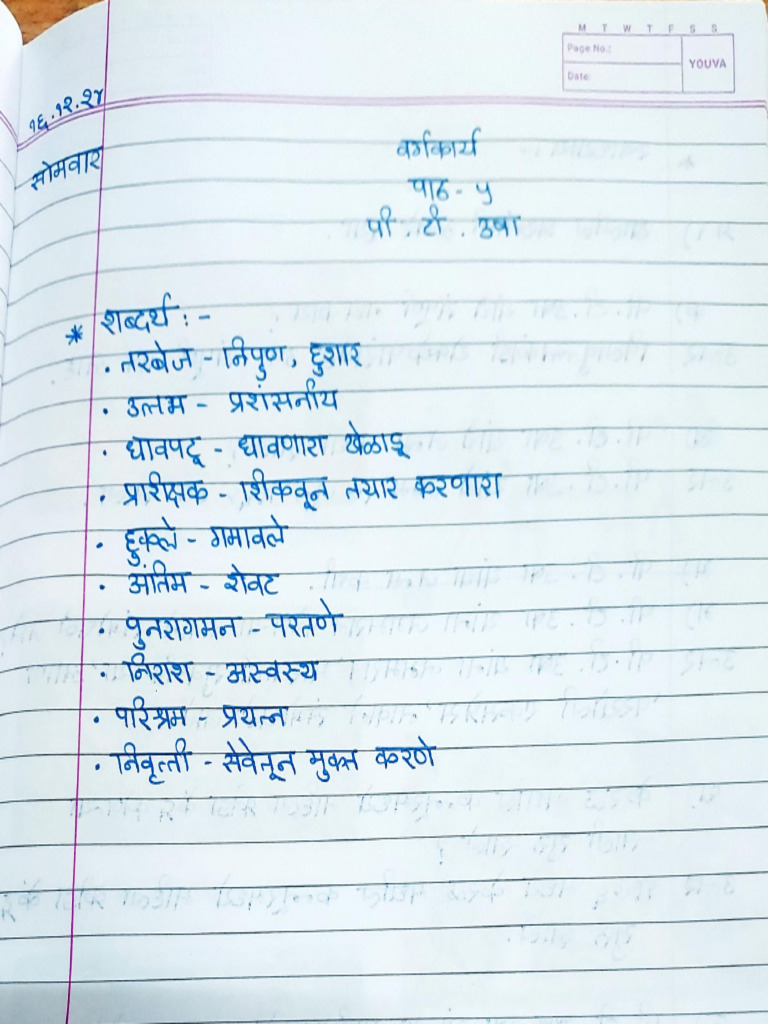 M T W T F S S
Page No.:
YOUVA
Date:
१६.१२.२४
सोमवार
वर्गकार्य
पाठ - ५
पी टी. उषा
* शब्दर्थ :-
• तरबेज - निपुण, हुशार
• उत्तम - प्रशंसनीय
• धावपटू - धावणारा खेळाडू
• प्रशिक्षक - शिकवून तयार करणारा
• हुकले - गमावले
• अंतिम - शेवट
• पुनरागमन - परतणे
• निराश - अस्वस्थ
• परिश्रम - प्रयत्न
• निवृत्ती - सेवेतून मुक्त करणे